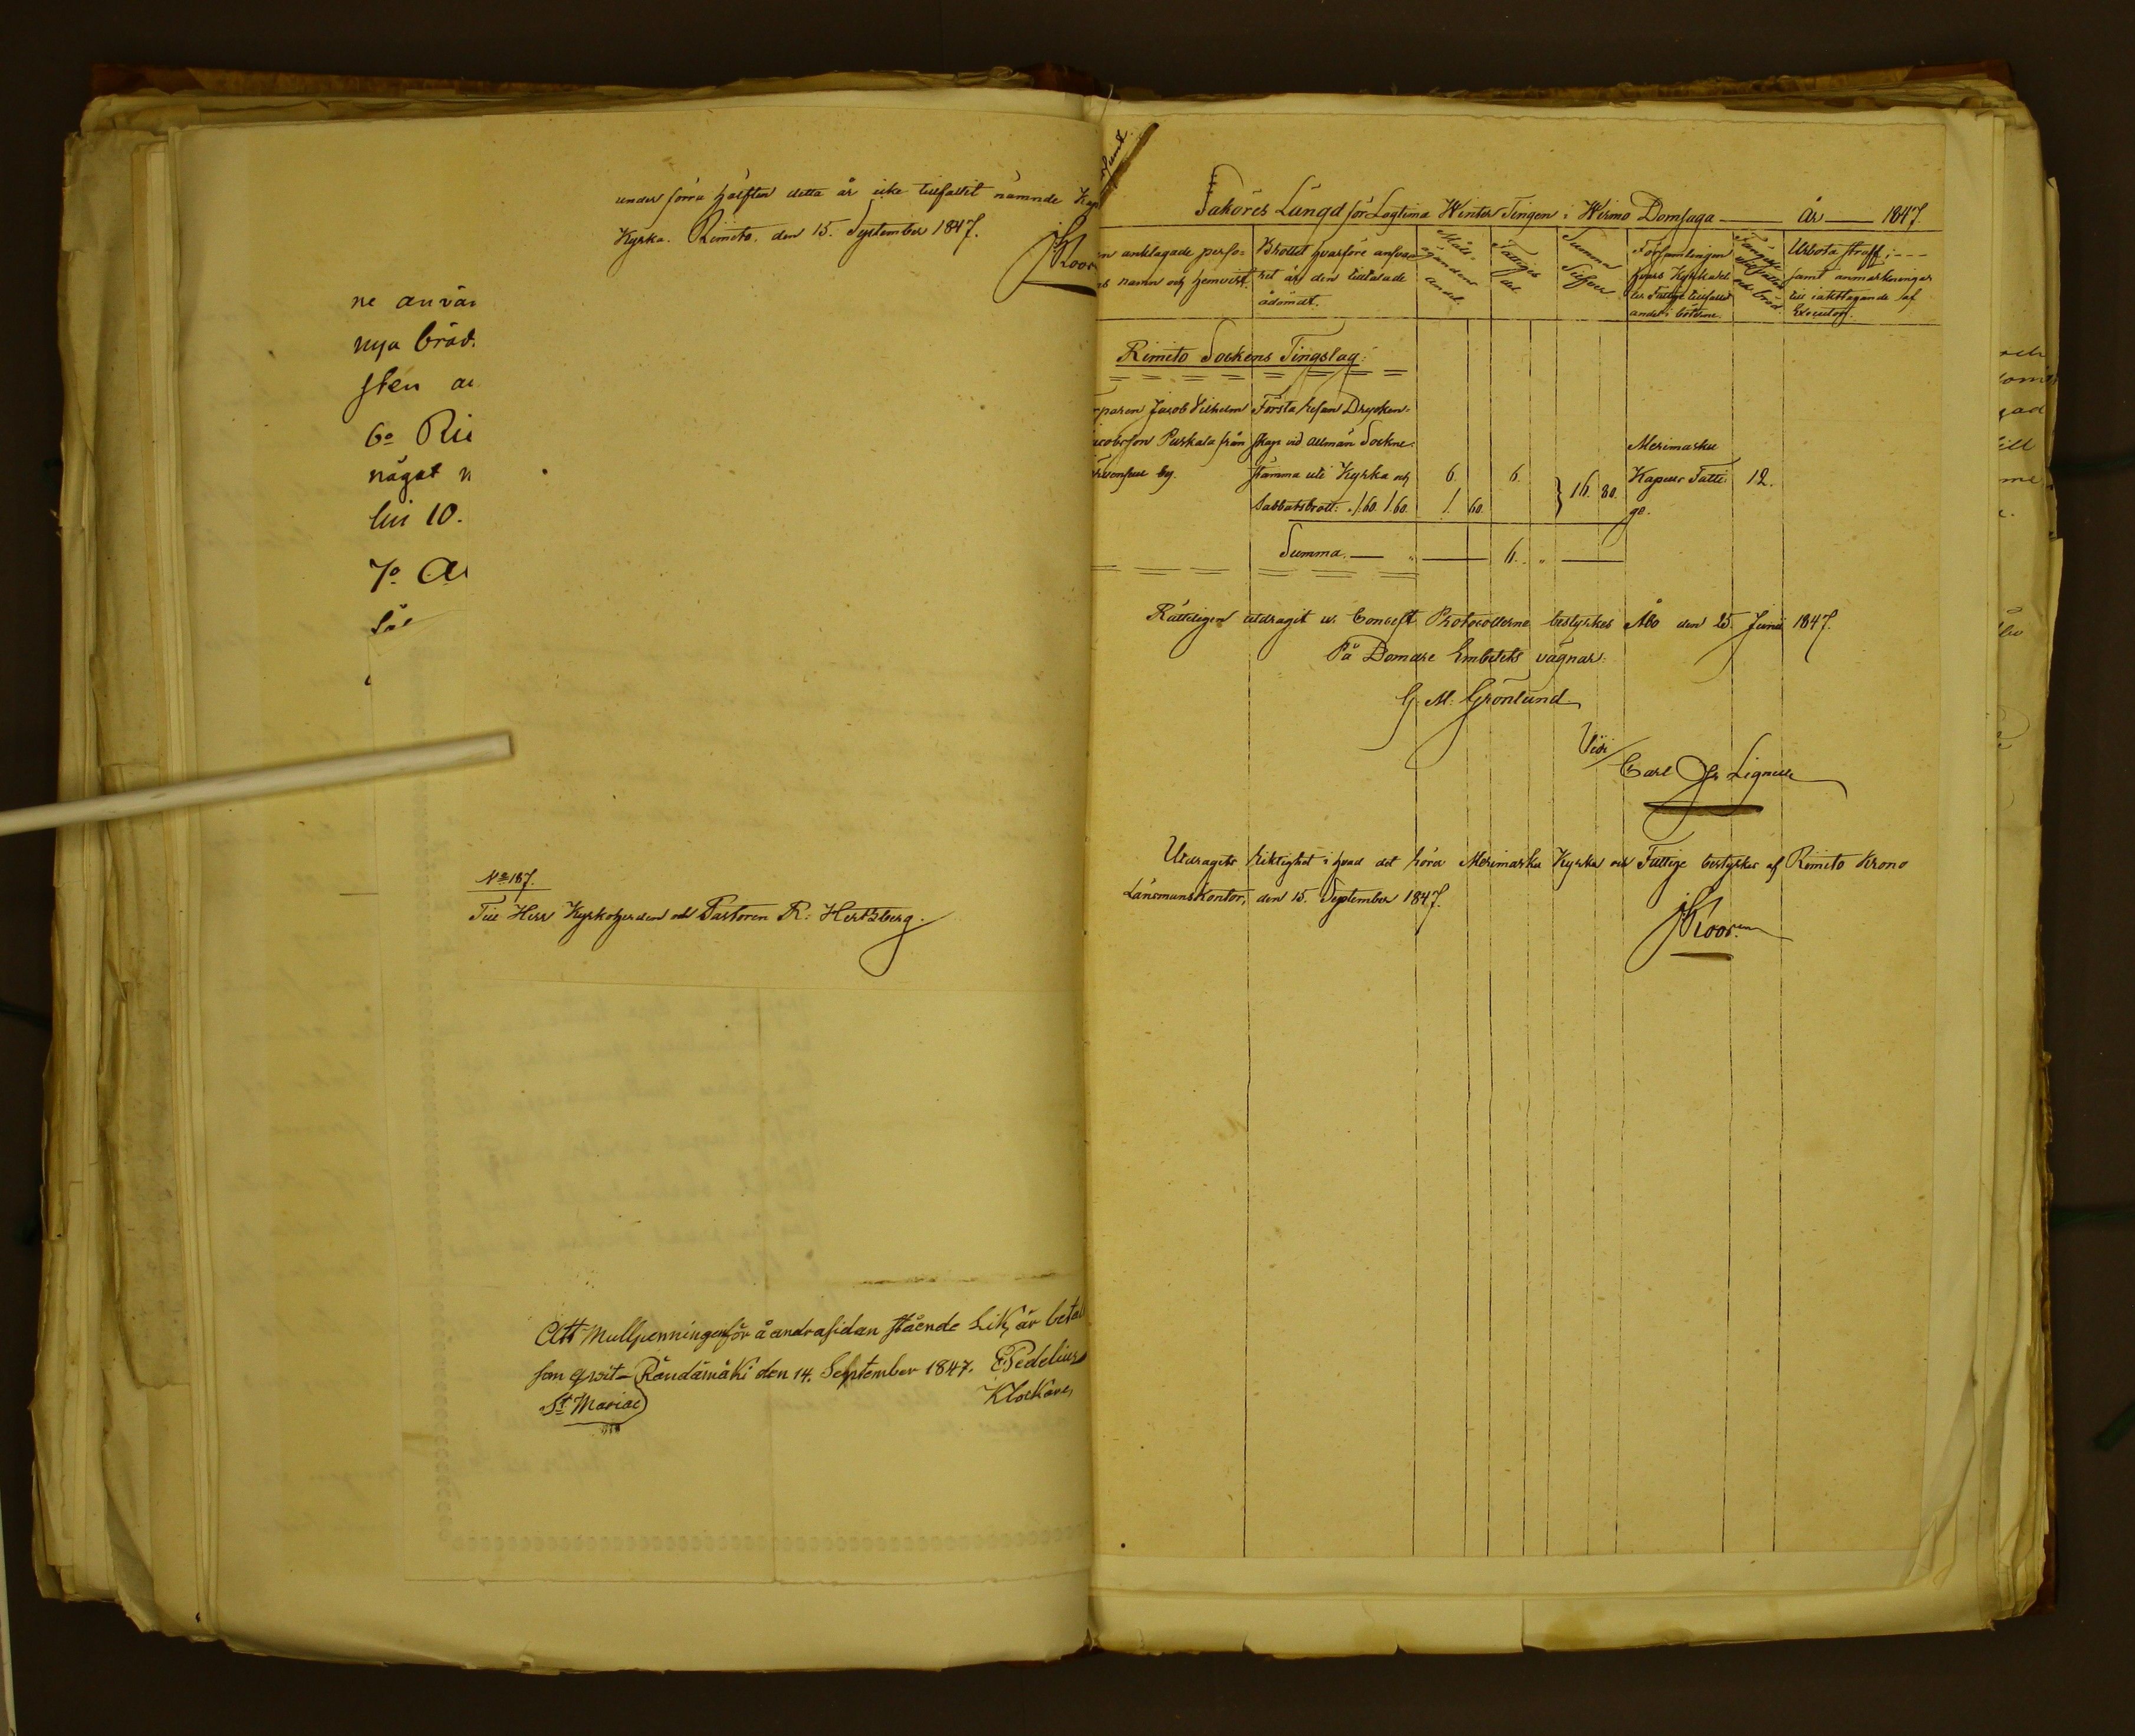 under förra hälften detta år icke tillfallit nämnde
Kyrka. Rimito, den 15. September 1847.
ne använ
nya bröd.
sten
6o
något
lin 10.
7o
No 187.
Till Herr Kyrkoherden och Pastoren R: Hertzberg.
Att Mullpenningen för å andra sidan stående Lik, är betal
som qvit. Rändämäki den 14. September 1847. E. Pedelius
St Mariae
Klockare
Saköres Längd för Lagtima Winter Tingen i Wirmo Domsaga år 1847.
n anklagade perso=
ns namn och hemvist.
Brottet hvarföre ansva=
ret är den tilltalade
ådömdt.
Måls=
ägandens
andel.
Fattiges
del.
Summa
Silfver
Församlingen
hvars Kyrka el=
ler Fattige tillfalla
andel i böterne.
Fängelse
vid vatten
och bröd.
Urbota straff
samt anmärkningar
till iakttagande af
Executor.
Rimito Sockens Tingslag:
rparen Jacob Wilhelm
acobsson Puskala från
by.
Första resan Drycken=
skap vid allmän Sockne=
stämma uti Kyrka och
Sabbatsbrott: 1.60. 1.60.
6.
1. 60.
6.
16. 80.
Merimasku
Kapells Fatti
ge.
12.
Summa. 6.
Rätteligen utdraget ur Concept Protocollerne bestyrkes Åbo den 25. Junii 1847.
På Domare Embetets vägnar:
G. M. Grönlund
Vidi
Carl Lignell
Utdragets riktighet i hvad det rörer Merimasku Kyrka och Fattige bestyrkes af Rimito Krono
Länsmans Kontor, den 15. September 1847.